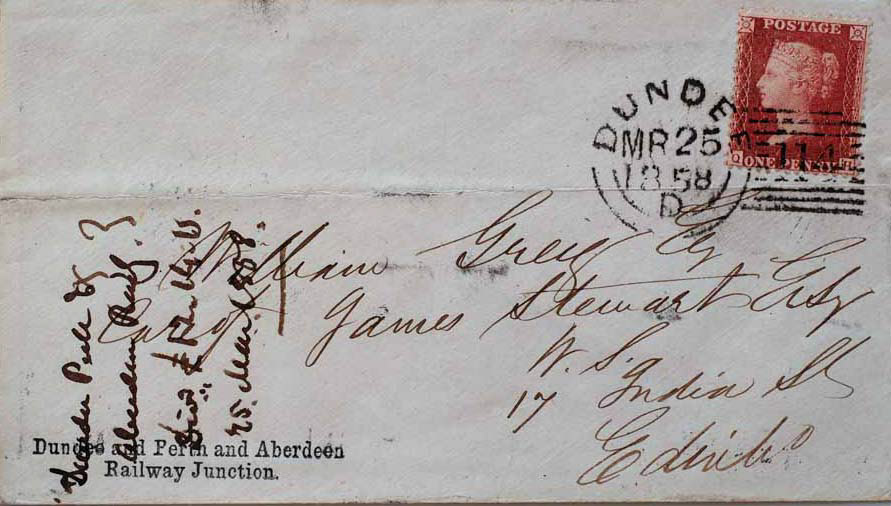 POSTAGE
ONE PENNY
DUNDEE
MR 25
1858
D
114
William Greig Esq
Care of James Stewart Esq
W. S.
17 India St
Edinbo
Dundee Perth &
Aberdeen Raily.
25 March 1858
Dundee and Perth and Aberdeen
Railway Junction.